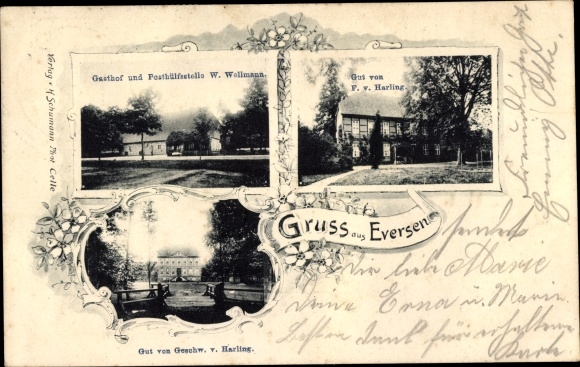 Gasthof und Posthülfsstelle W. Wollmann.
Gut von
F. v. Harling.
Verlag v. H. Schumann Phot. Celle
Gruss aus Eversen
Gut von Geschw. v. Harling.
senden
Dir liebe Marie
deine Erna u. Marie.
Besten Dank für erhaltene
Karte.